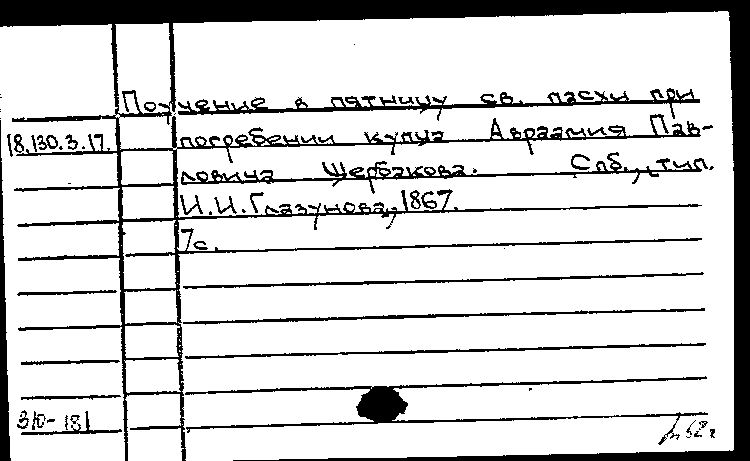 Поучение в пятницу св. пасхи при
18.130.3.17. погребении купца Авраамия Пав-
ловича Щербакова. Спб., тип.
И.И.Глазунова, 1867.
7с.
310-181